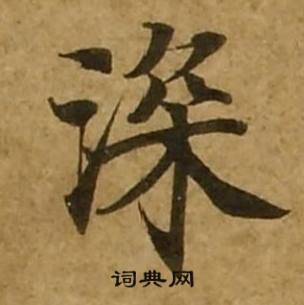 深
词典网